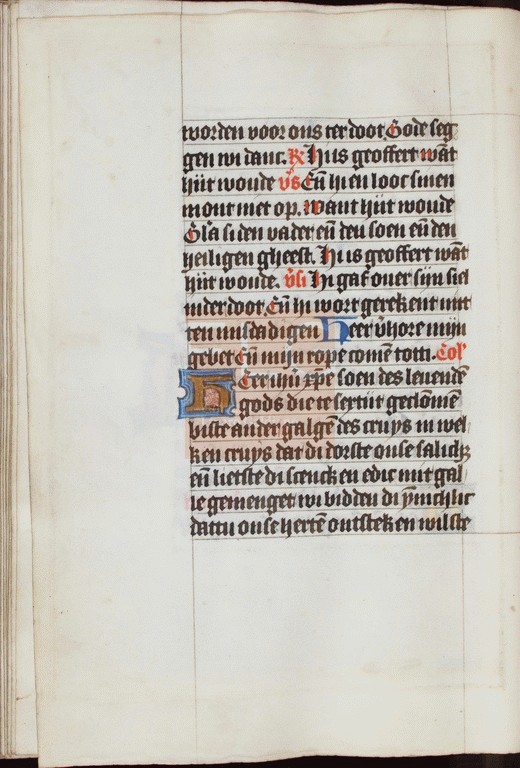 worden voor ons ter doot. Gode seg
gen wi danc. R Hi is geoffert wāt
hijt woude vs Eñ hi en looc sinen
mont niet op. want hijt woude
Glīa si den vader eñ den soen eñ den
heiligen gheest. Hi is geoffert wāt
hijt woude. v̄si Hi gaf over sijn siel
inder doot. Eñ hi wort gerekent mit
ten misdadigen Heer v̄hore mijn
gebet Eñ mijn rope comē toti. Col'
Heer ihū xp̄e soen des levendē
gods die te sextijt geclōmē
biste ander galgē des cruys in wel
ken cruys dat di dorste onse salich
eñ lietste di scencken edic mit gal
le gemenget wi bidden di
dattu onse hertē ontsteken wilste